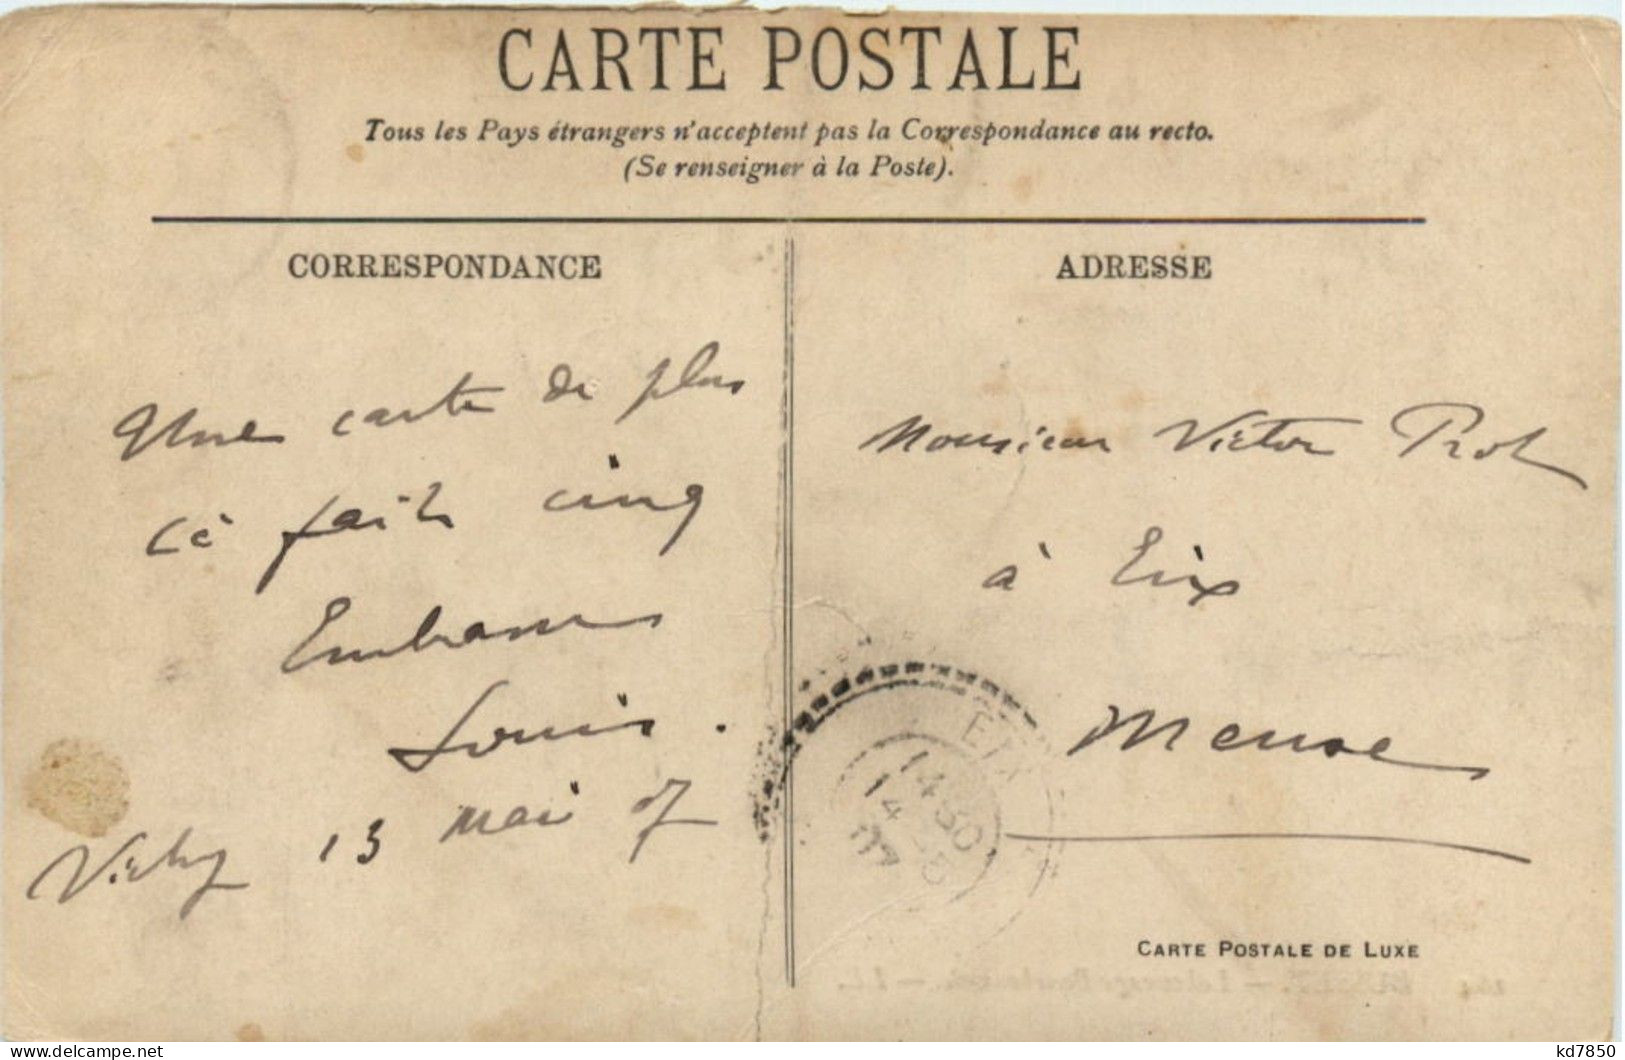 CARTE POSTALE
Tous les Pays étrangers n'acceptent pas la Correspondance au recto.
(Se renseigner à la Poste).
CORRESPONDANCE
Une carte de plus
cè fait cinq
Embrasses
Louis.
Vichy 13 mai 07
ADRESSE
Monsieur Victor Prot
à Eix
Meuse
EIX
14 50
14
07
CARTE POSTALE DE LUXE
kd7850